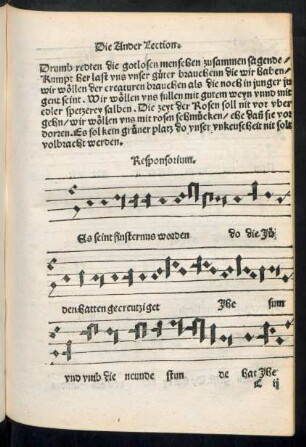 Die Ander Lection.
Drumb redten die gotlosen menschen zusammen sagende/
Kumpt her last vns vnser güter brauchenn die wir haben/
wir wöllen der creaturen brauchen als die noch in junger ju
gent seint. Wir wöllen vns füllen mit gutem weyn vnnd mit
edler spetzerey salben. Die zeyt der Rosen soll nit vor vber
gehn/ wir wöllen vns mit rosen schmücken/ ehe dañ sie vor
dorren. Es sol kein grüner platz do vnser vnkeuscheit nit sol
volbracht werden.
Responsorium.
Es seint finsternus worden do die Jü
den hatten gecreutziget Jhe sum
vnd vmb die neunde stun de hat Jhe
C ij